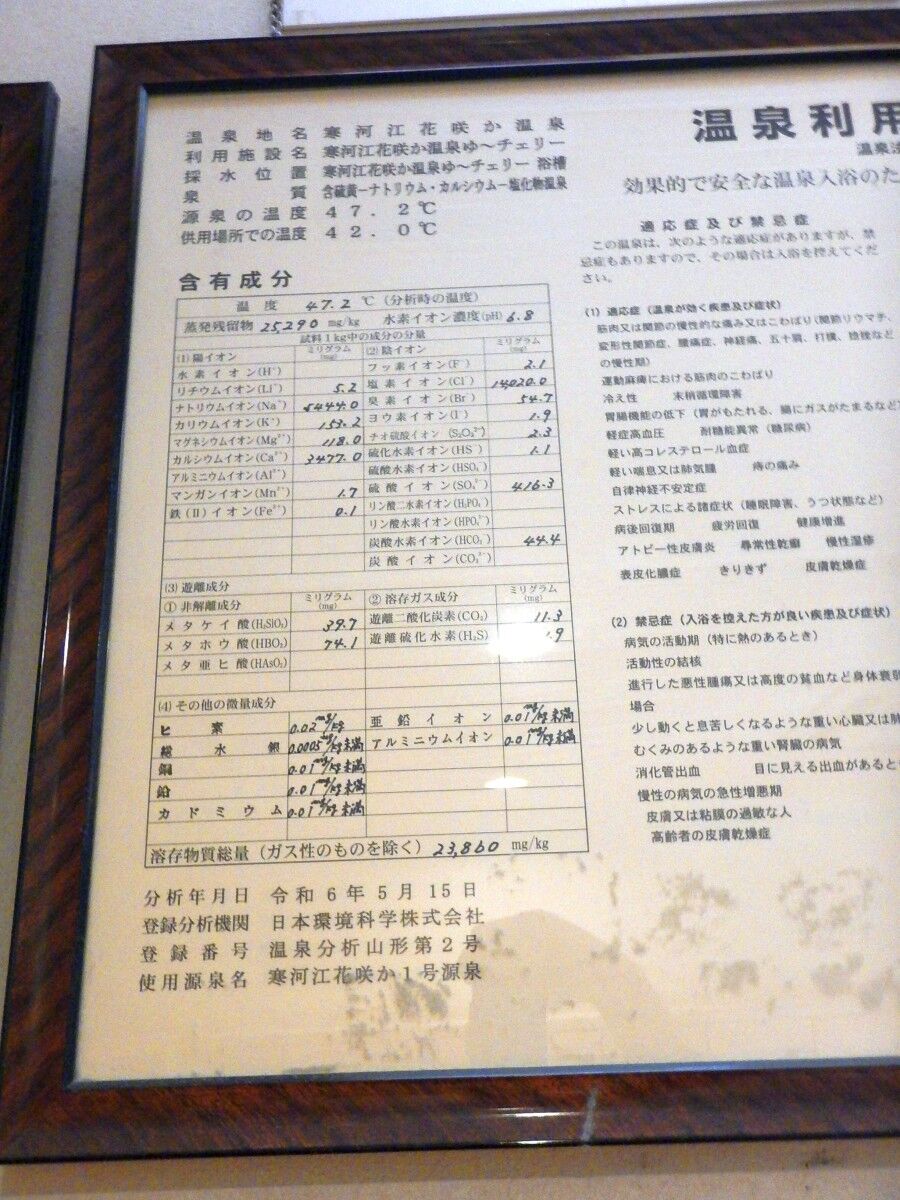 温泉地名 寒河江花咲か温泉
利用施設名 寒河江花咲か温泉ゆ～チェリー
採水位置 寒河江花咲か温泉ゆ～チェリー 浴槽
泉質 含硫黄ーナトリウム・カルシウムー塩化物温泉
源泉の温度 47.2℃
供用場所での温度 42.0℃
含有成分
温度 47.2 ℃（分析時の温度）
蒸発残留物 25,290 mg/kg 水素イオン濃度(pH) 6.8
試料1kg中の成分の分量
(1)陽イオン ミリグラム(mg) (2)陰イオン ミリグラム(mg)
水素イオン(H⁺) フッ素イオン(F⁻) 2.1
リチウムイオン(Li⁺) 5.2 塩素イオン(Cl⁻) 14,020.0
ナトリウムイオン(Na⁺) 5444.0 臭素イオン(Br⁻) 54.7
カリウムイオン(K⁺) 153.2 ヨウ素イオン(I⁻) 1.9
マグネシウムイオン(Mg²⁺) 118.0 チオ硫酸イオン(S₂O₃²⁻) 2.3
カルシウムイオン(Ca²⁺) 3477.0 硫化水素イオン(HS⁻) 1.1
アルミニウムイオン(Al³⁺) 硫酸水素イオン(HSO₄⁻)
マンガンイオン(Mn²⁺) 1.7 硫酸イオン(SO₄²⁻) 416.3
鉄(Ⅱ)イオン(Fe²⁺) 0.1 リン酸二水素イオン(H₂PO₄⁻)
リン酸水素イオン(HPO₄²⁻)
炭酸水素イオン(HCO₃⁻) 44.4
炭酸イオン(CO₃²⁻)
(3)遊離成分
①非解離成分 ミリグラム(mg) ②溶存ガス成分 ミリグラム(mg)
メタケイ酸(H₂SiO₃) 39.7 遊離二酸化炭素(CO₂) 11.3
メタホウ酸(HBO₂) 74.1 遊離硫化水素(H₂S) 1.9
メタ亜ヒ酸(HAsO₂)
(4)その他の微量成分
ヒ素 0.02mg/kg 亜鉛イオン 0.01mg/kg未満
総水銀 0.0005mg/kg未満 アルミニウムイオン 0.01mg/kg未満
銅 0.01mg/kg未満
鉛 0.01mg/kg未満
カドミウム 0.01mg/kg未満
溶存物質総量（ガス性のものを除く）23,860 mg/kg
分析年月日 令和6年5月15日
登録分析機関 日本環境科学株式会社
登録番号 温泉分析山形第2号
使用源泉名 寒河江花咲か1号源泉
温泉利用
温泉法
効果的で安全な温泉入浴のた
適応症及び禁忌症
この温泉は、次のような適応症がありますが、禁
忌症もありますので、その場合は入浴を控えてくだ
さい。
(1) 適応症（温泉が効く疾患及び症状）
筋肉又は関節の慢性的な痛み又はこわばり（関節リウマチ、
変形性関節症、腰痛症、神経痛、五十肩、打撲、捻挫など
の慢性期）
運動麻痺における筋肉のこわばり
冷え性 末梢循環障害
胃腸機能の低下（胃がもたれる、腸にガスがたまるなど
軽症高血圧 耐糖能異常（糖尿病）
軽い高コレステロール血症
軽い喘息又は肺気腫 痔の痛み
自律神経不安定症
ストレスによる諸症状（睡眠障害、うつ状態など）
病後回復期 疲労回復 健康増進
アトピー性皮膚炎 尋常性乾癬 慢性湿疹
表皮化膿症 きりきず 皮膚乾燥症
(2) 禁忌症（入浴を控えた方が良い疾患及び症状）
病気の活動期（特に熱のあるとき）
活動性の結核
進行した悪性腫瘍又は高度の貧血など身体衰弱
場合
少し動くと息苦しくなるような重い心臓又は肺
むくみのあるような重い腎臓の病気
消化管出血 目に見える出血があると
慢性の病気の急性増悪期
皮膚又は粘膜の過敏な人
高齢者の皮膚乾燥症